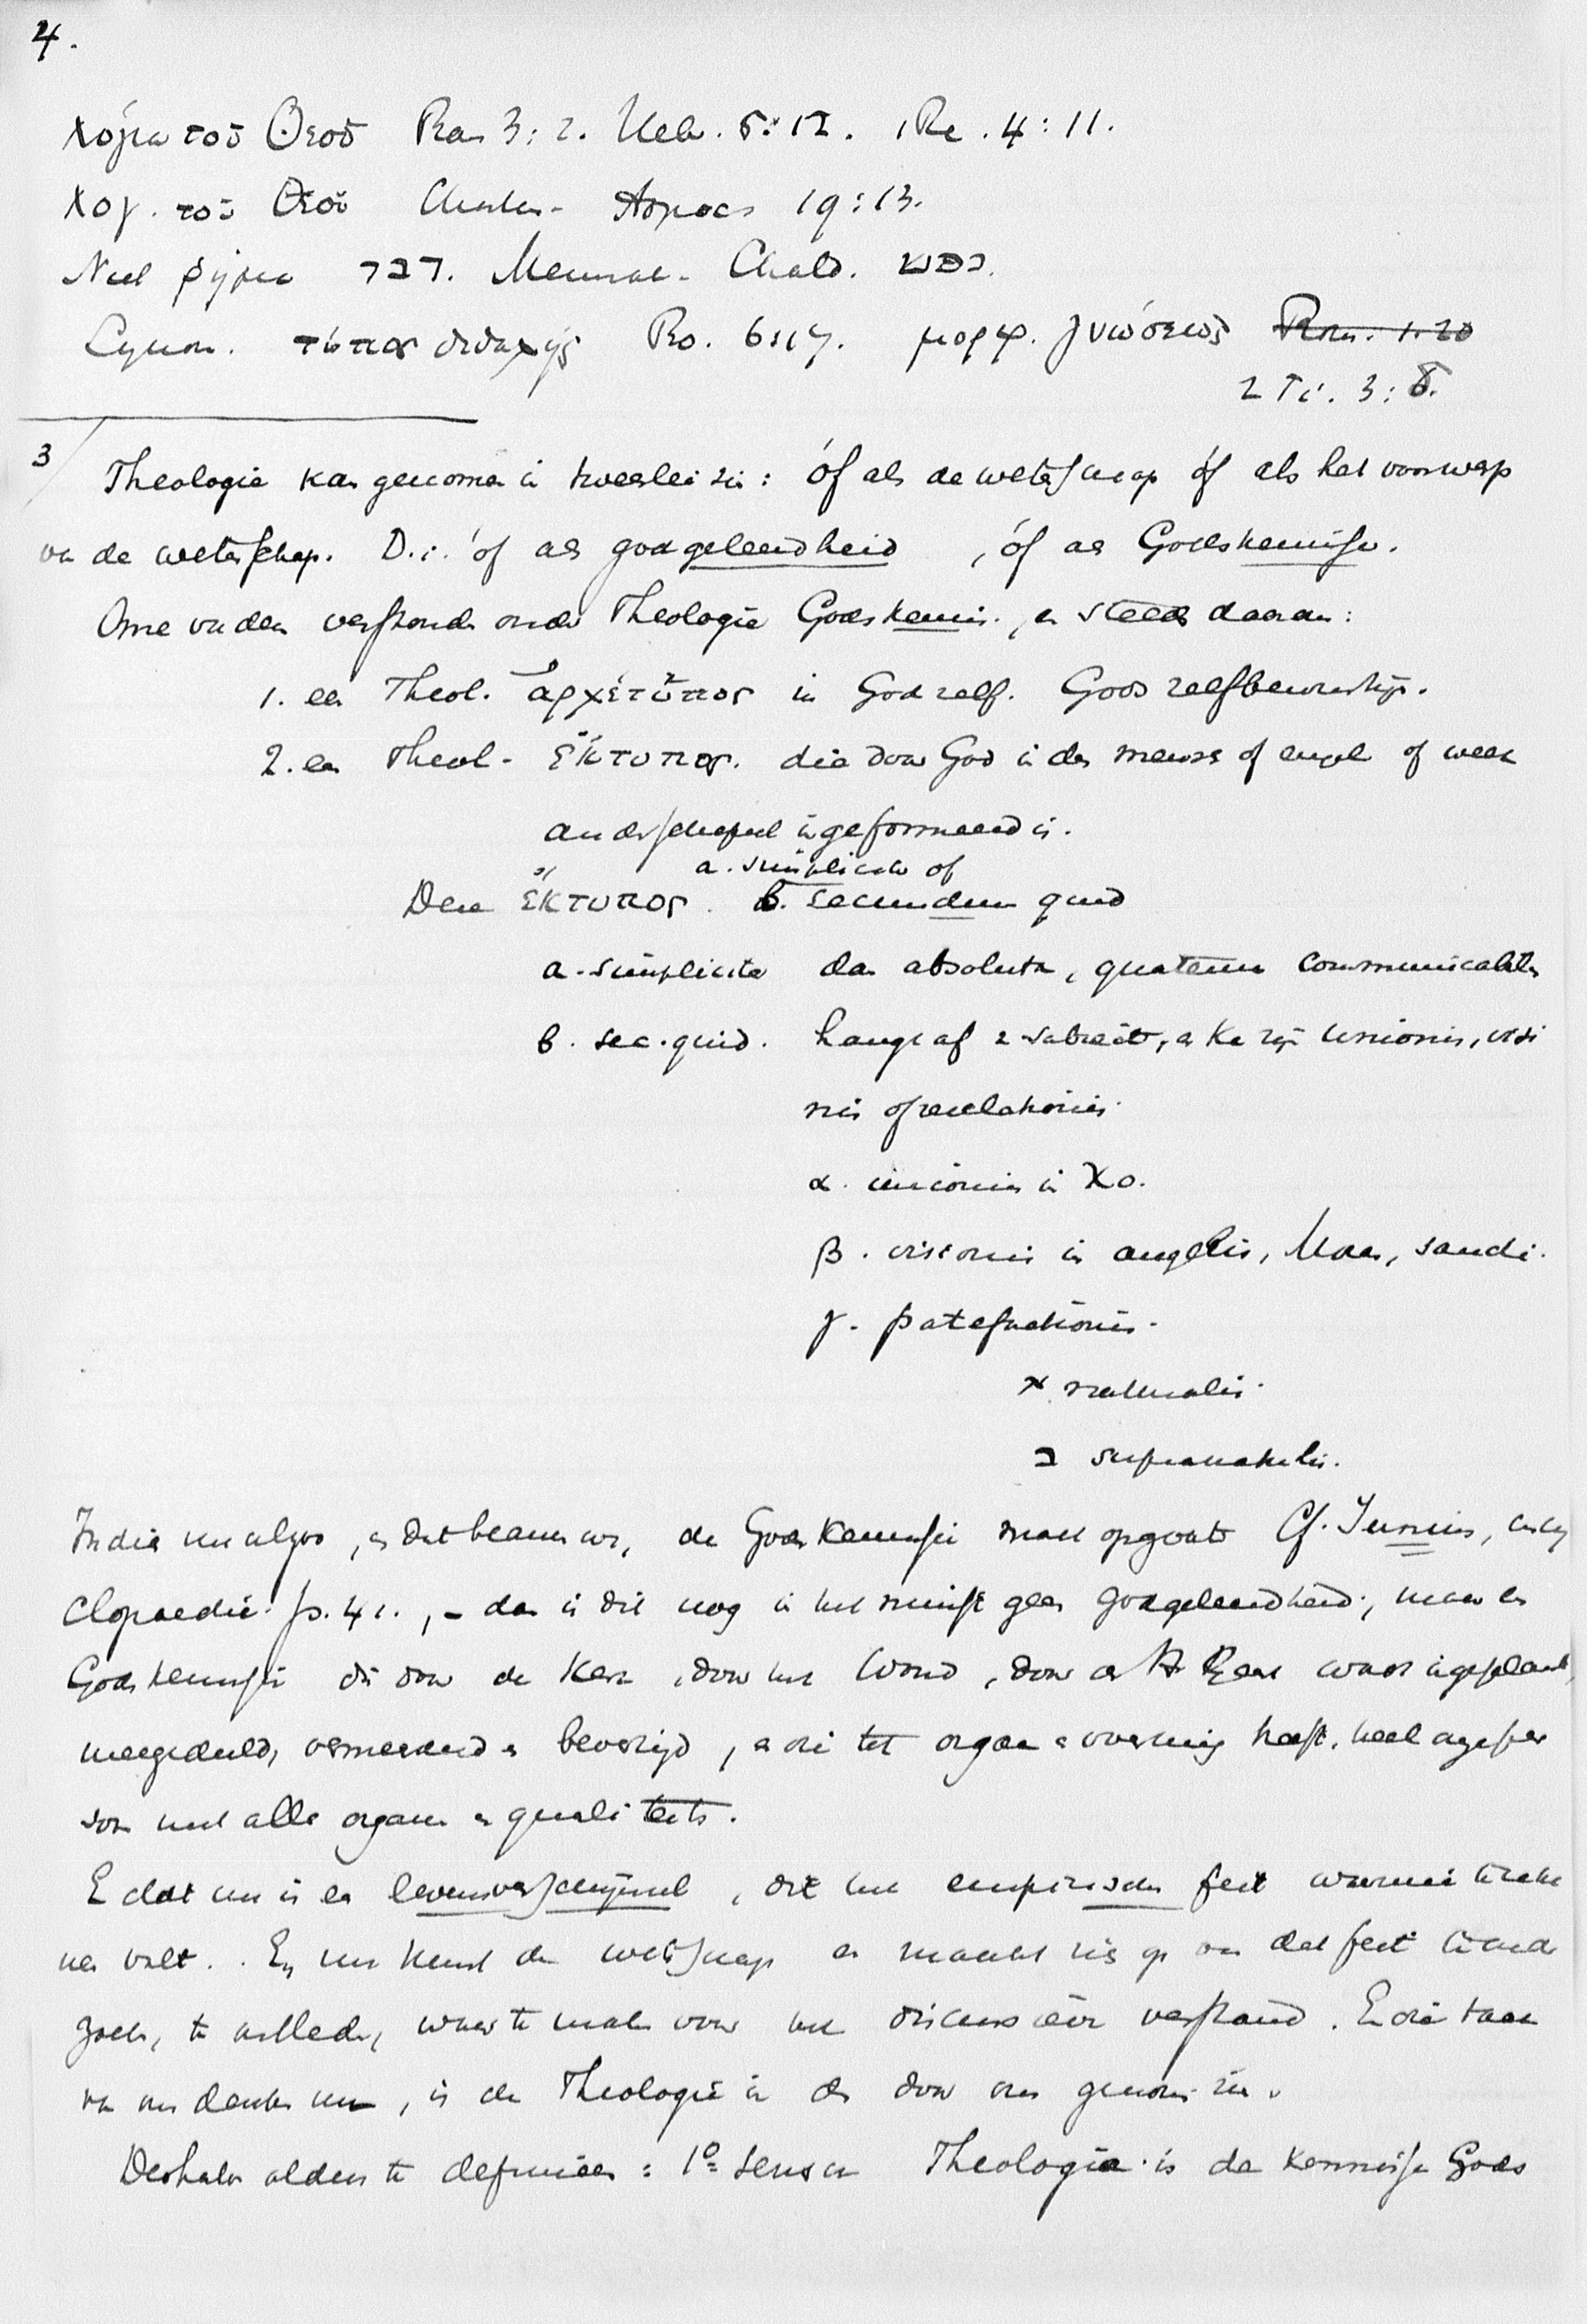 4.
λόγια τοῦ Θεοῦ Rom 3:2. Heb. 5:12. 1 Pe. 4:11.
λογ. τοῦ Θεοῦ Christus - Apoca 19:13.
Niet ῥῆμα דבר. Memra - Chald.
Synon. τύπος διδαχῆς Ro. 6:17. μορφ. γνώσεως Rom. 1.20
2 Ti. 3:5.
3/ Theologie kan genomen in tweeërlei zin: óf als de wetenschap óf als het voorwerp
van de wetenschap. D.i. óf als godgeleerdheid, óf als Godskennisse.
Onze vaderen verstonden onder Theologie Godskennis., en steeds daaraan:
1. een Theol. ἀρχέτυπος in God zelf. Gods zelfbewustzijn.
2. een Theol - ἔκτυπος. die door God in den mensch of engel of welk
ander schepsel ingeformeerd is.
a. simpliciter of
Deze ἔκτυπος. b. secundum quid
a. simpliciter dan absoluta, quatenus communicabilis
b. sec. quid. hangt af v. subject, en kan zijn unionis, visi
nis of revelationis.
α. unionis in Xo.
β. visionis in angelis, Mose, sancti.
γ. patefactionis.
א naturalis.
ב supranaturalis.
Indien nu alzoo, en dat beamen we, de Godskennisse moet opgevat Cf. Junius, Ency
clopaedie p. 41., - dan is dit nog in het minst geen godgeleerdheid, maar een
Godskennisse die door de Kerk, door het Woord, door den H. Geest wordt ingeplant,
meegedeeld, vermeerderd en bevestigd, en die tot orgaan onzerzijds heeft, heel onze per
soon met alle organen en qualiteiten.
En dat nu is een levensverschijnsel, dit het empirische feit waarmee te reke
nen valt. En nu komt de wetenschap en maakt zich op om dat feit te onder
zoeken, te ontleden, waar te maken voor het discursieve verstand. En die taak
van ons denken nu, is de Theologie in den door ons genomen zin.
Deshalve aldus te definiëeren: 1o sensu Theologia is de kennisse Gods